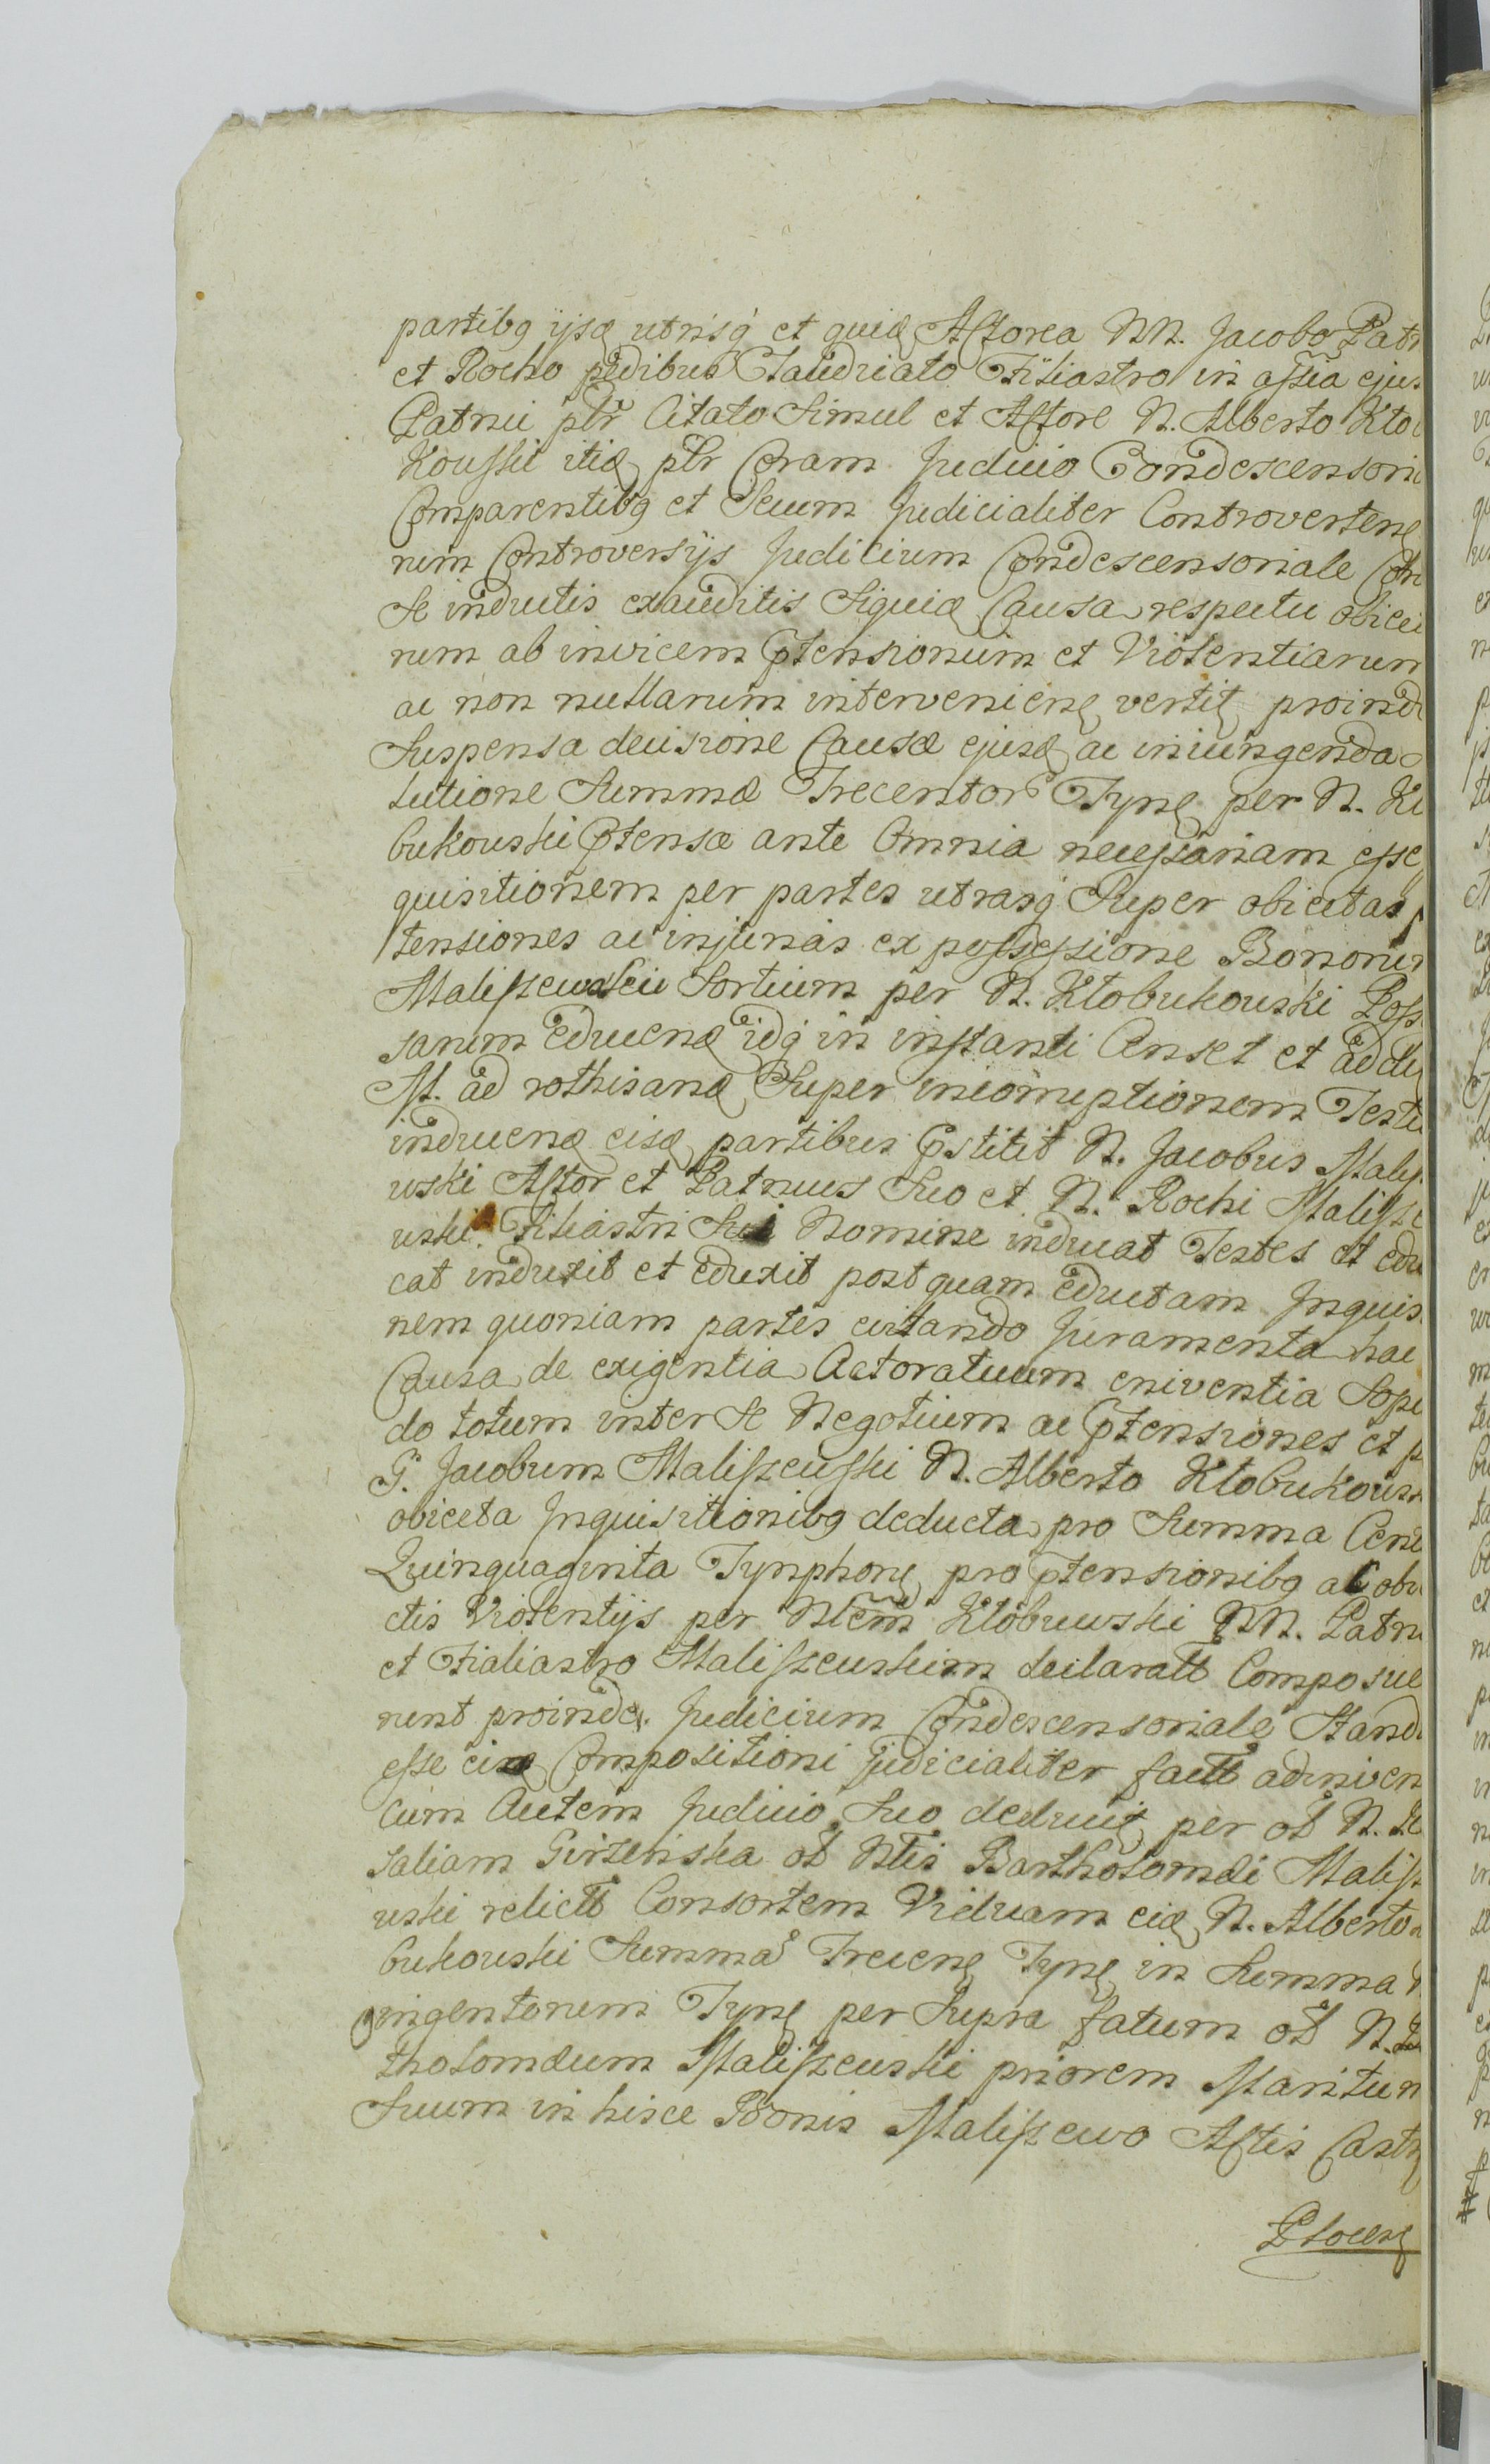 partibq ijsq utrisq et quiq Actorea NN. Jacobo Patr
et Rocho pedibus Claudicato Filiastro in assia ejus
Patrui pltr Citato Simul et Actore N. Alberto Kło
Kouski itiq pltr Coram Judicio Condescensori
Comparentibq et Secum Judicialiter Controverten
rum Controversijs Judicium Condescensoriale
Se inductis exauditis Siquiq Causa respectu obicei
rum ab invicem ptensionum et Violentiarum
ac non nullarum intervenien vertit proind
Suspensa decisione Causæ ejusq ac iniungenda
lutione Summæ Trecentor Tyn per N. Kł
bukouski ptensæ ante Omnia necessariam esse
quisitionem per partes utrasq Super obicetas p
tensiones ac injurias ex possessione Bonorum
Maliszewskiu Sortium per N. Kłobukouski Poss
sarum educenq idq in instanti Censet et addu
M. ad rothisanq Super incorruptionem Testi
inducenq eisq partibus pstitit N. Jacobus Malis
uski Actor et Patruus Suo et N. Rochi Malisze
uski Filiastri Sui Nomine inducat Testes et edu
cat induxit et eduxit post quam eductam Inquis
nem quoniam partes evitando Juramenta hac
Causa de exigentia Actoratuum eniventia Sopi
do totum inter Se Negotium ac ptensiones et p
G. Jacobum Maliszeuski N. Alberto Kłobukous
obiceta Inquisitionibq deducta pro Summa Cen
Quinquaginta Tynphon pro ptensionibq ac obi
ctis Violentijs per Nlem Kłobuwski NN. Patru
et Fialiastro Maliszeuskim declaratt Composue
runt proinde Judicium Condescensoriale Stand
esse eiq Compositioni judicialiter factt adinven
Cum Autem Judicio Suo deduci per oł N.
saliam Girzenska oł Nlis Bartholomæi Malisz
uski relictt Consortem Viduam eiq N. Alberto
bukouski Summa Trecen Tyn in Summa
ingentorum Tyn per Supra fatum oł N.
tholomæum Maliszeuski priorem Maritum
Suum in hisce Bonis Maliszewo Actis Castr
Płocen